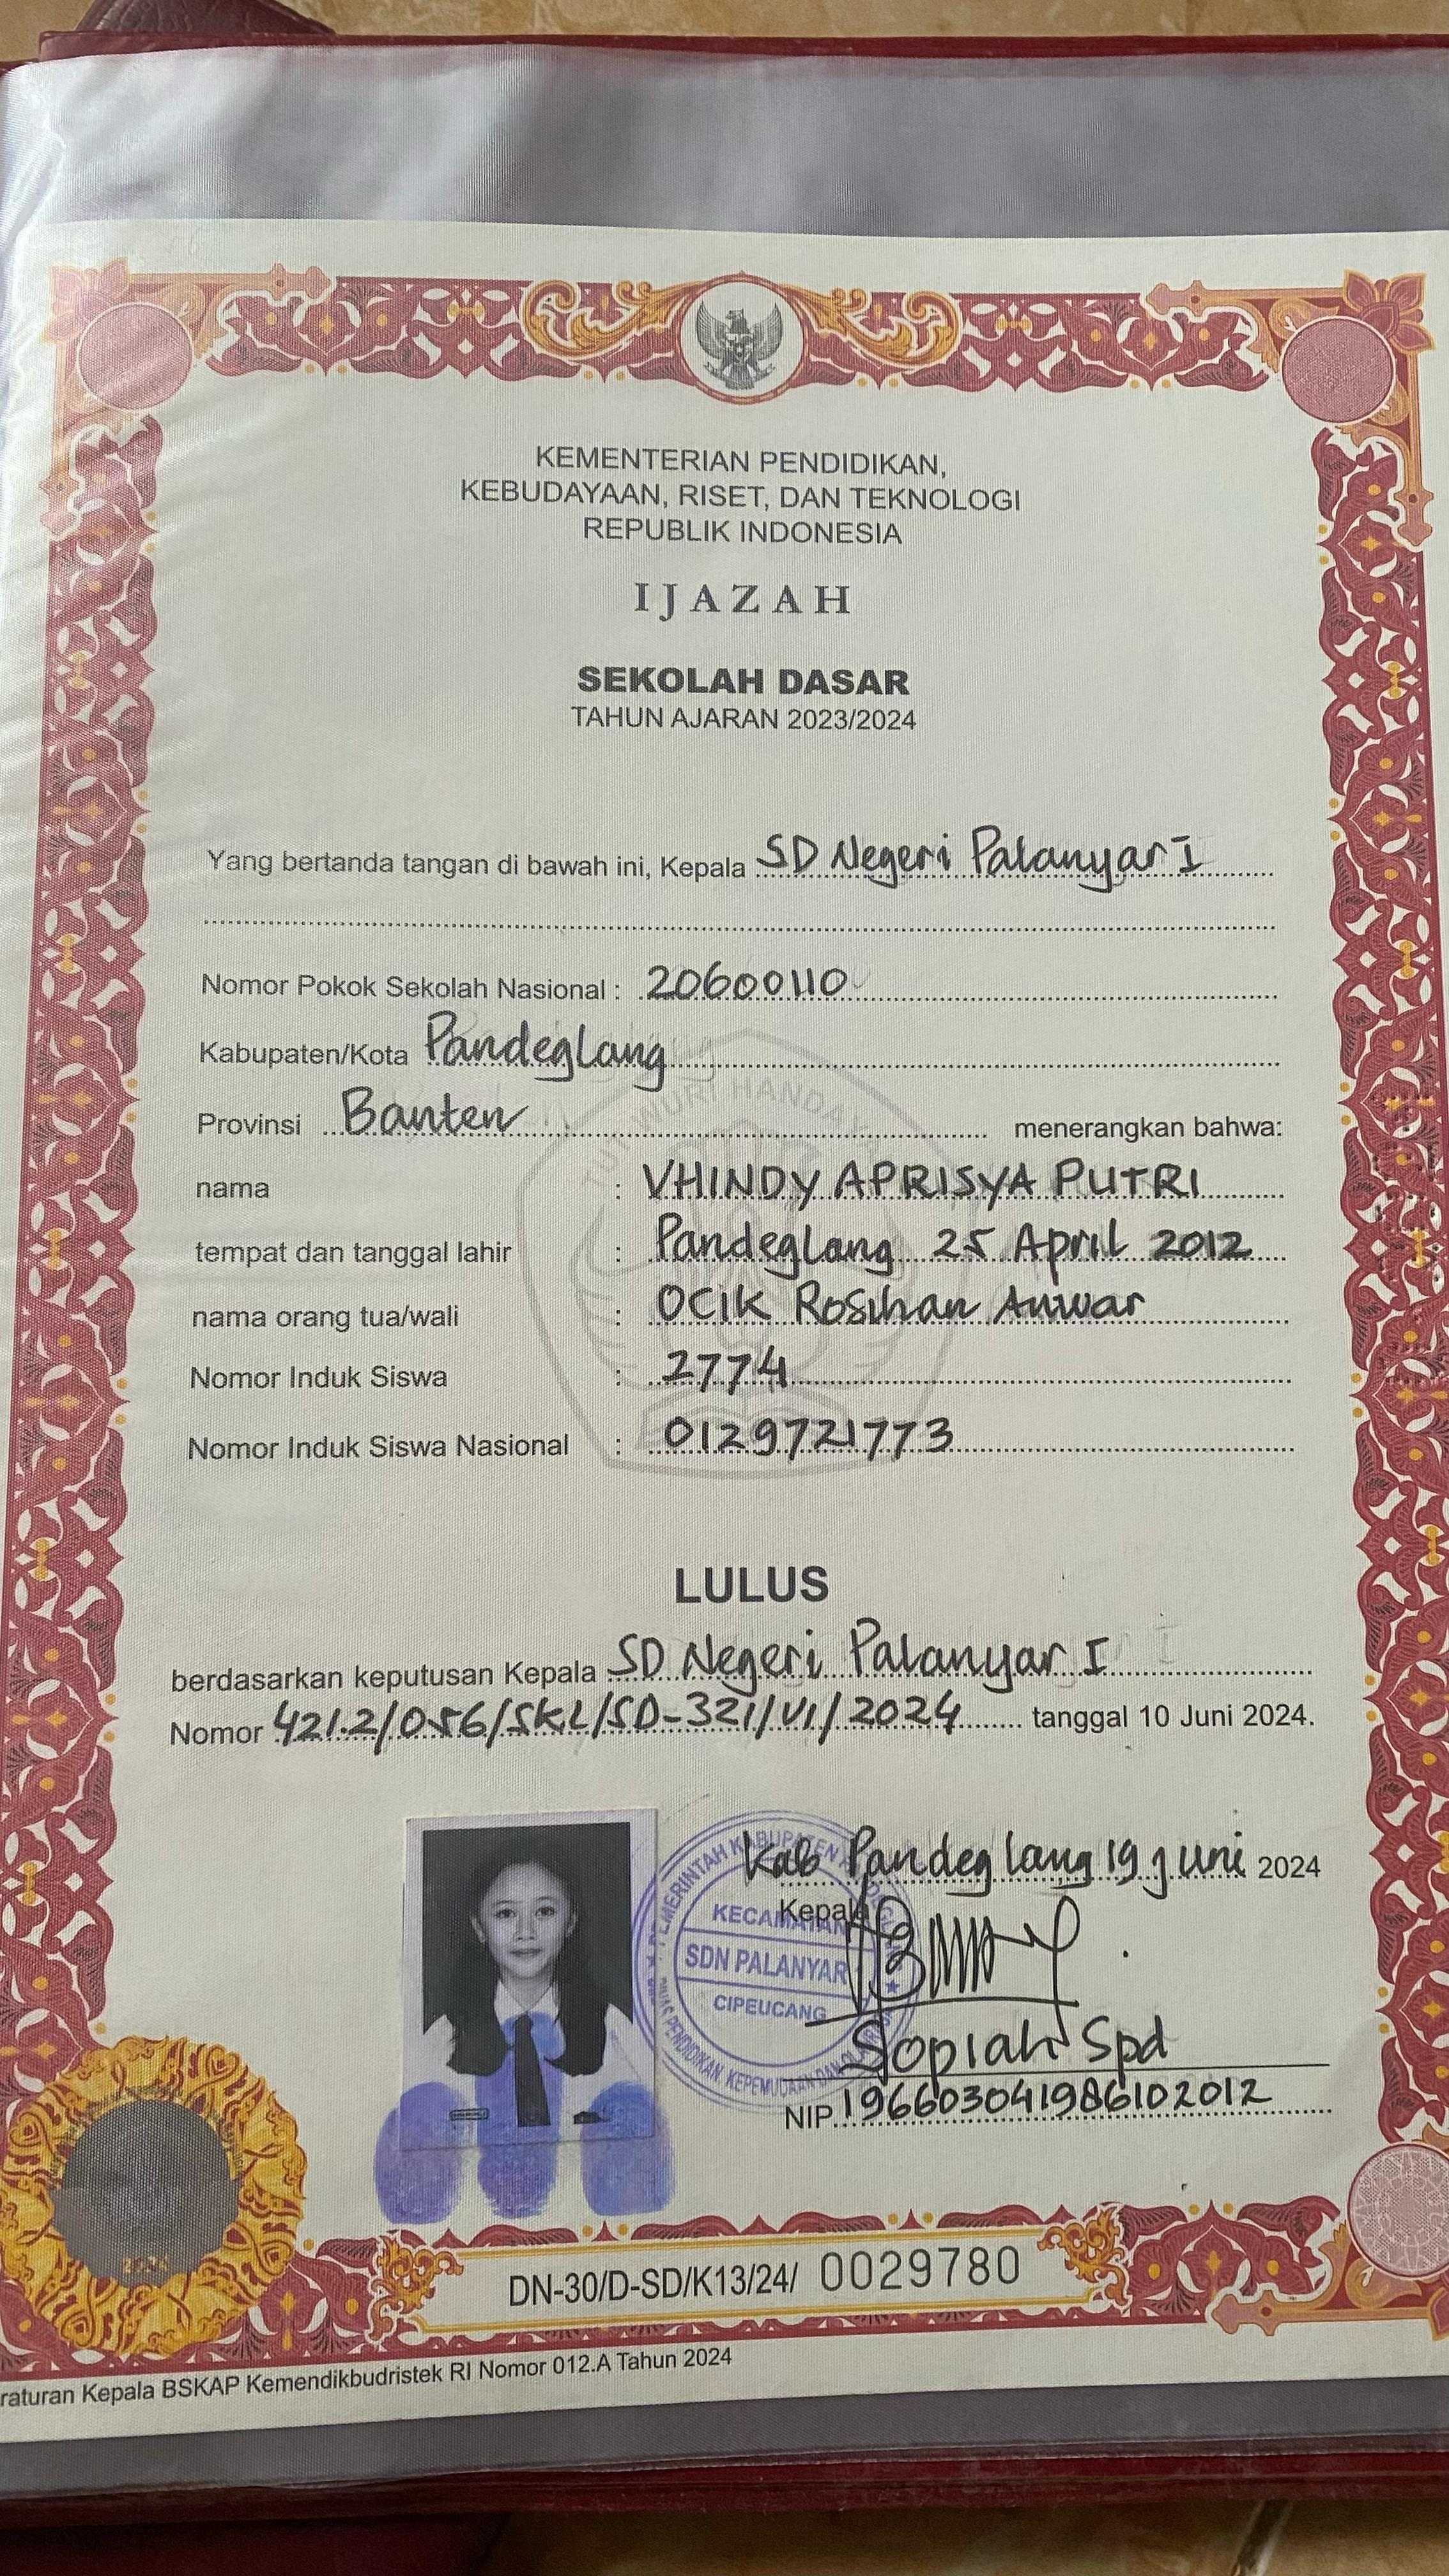 KEMENTERIAN PENDIDIKAN,
KEBUDAYAAN, RISET, DAN TEKNOLOGI
REPUBLIK INDONESIA
IJAZAH
SEKOLAH DASAR
TAHUN AJARAN 2023/2024
Yang bertanda tangan di bawah ini, Kepala SD Negeri Palanyar I
Nomor Pokok Sekolah Nasional : 20600110
Kabupaten/Kota Pandeglang
Provinsi Banten menerangkan bahwa:
nama : VHINDY APRISYA PUTRI
tempat dan tanggal lahir : Pandeglang 25 April 2012
nama orang tua/wali : Ocik Rosihan Anwar
Nomor Induk Siswa : 2774
Nomor Induk Siswa Nasional : 0129721773
LULUS
berdasarkan keputusan Kepala SD Negeri Palanyar I
Nomor 421.2/056/SKL/SD-321/VI/2024 tanggal 10 Juni 2024.
Kab Pandeglang 19 Juni 2024
Kepala
PEMERINTAH KABUPATEN
KECAMATAN
SDN PALANYAR
CIPEUCANG
PENDIDIKAN KEPEMUDAAN DAN
Sopiah Spd
NIP 196603041986102012
DN-30/D-SD/K13/24/ 0029780
raturan Kepala BSKAP Kemendikbudristek RI Nomor 012.A Tahun 2024